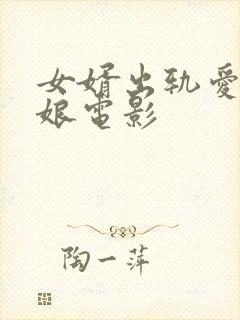 女婿出轨爱
娘电影
陶一萍